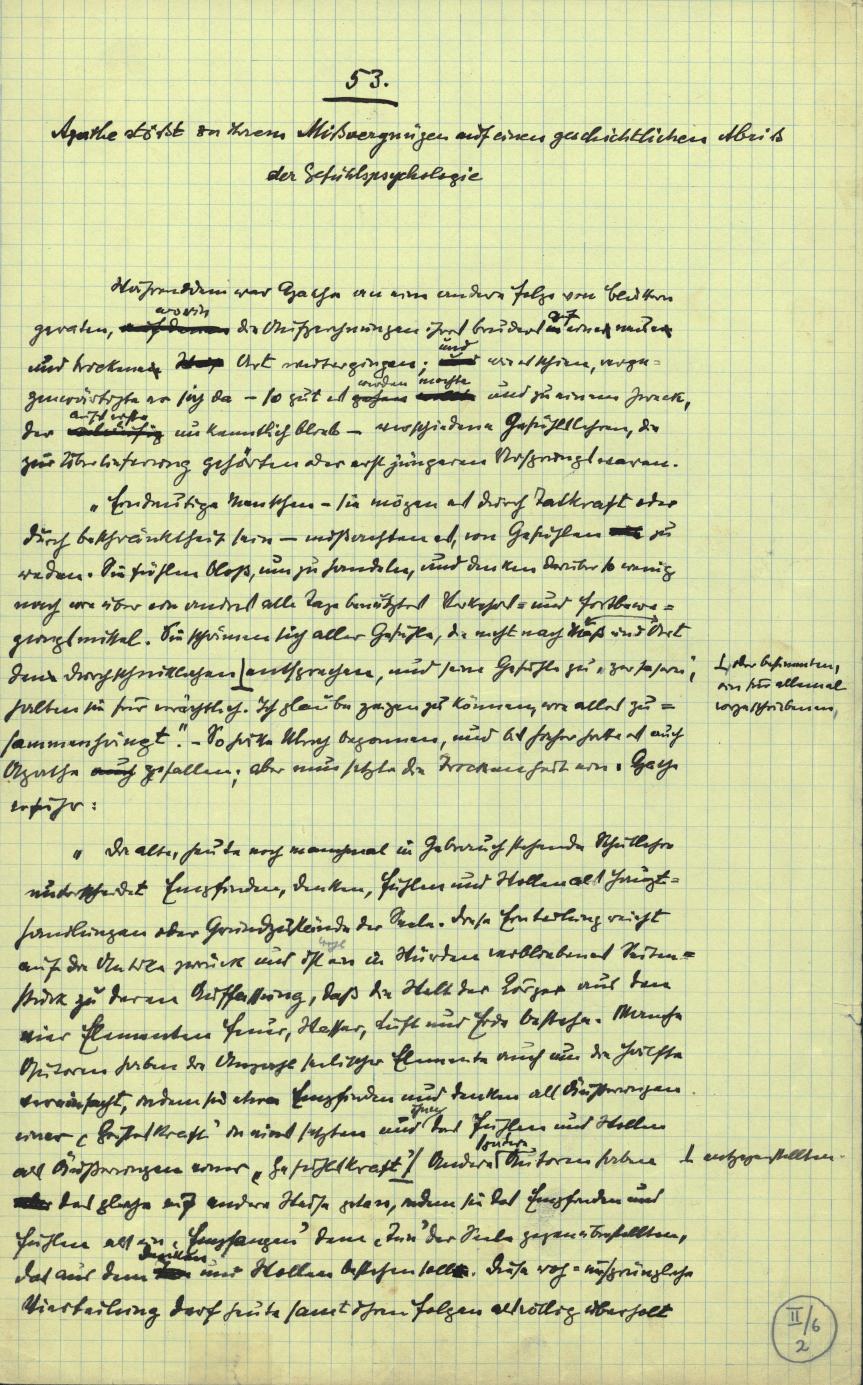 53.
Agathe stößt zu ihrem Mißvergnügen auf einen geschichtlichen Abriß
der Gefühlspsychologie
Währenddem war Agathe an eine andere Folge von Blättern
worin auf
geraten, auf denen die Aufzeichnungen ihres Bruders in einer neuen
und
und trockenen Art weitergingen; und wie es schien, verge-
werden mochte
genwärtigte er sich da – so gut es gehen wollte und zu einem Zweck,
aufs erste
der unkenntlich blieb – verschiedene Gefühlslehren, die
zur Überlieferung gehörten oder erst jüngeren Ursprungs waren.
„Eindeutige Menschen – sie mögen es durch Tatkraft oder
durch Beschränktheit sein – mißachten es, von Gefühlen zu
reden. Sie fühlen bloß, um zu handeln, und denken darüber so wenig
nach wie über ein andres alle Tage benütztes Verkehrs= und Fortbewe=
gungsmittel. Sie schämen sich aller Gefühle, die nicht nach Maß und Art
dem durchschnittlichen entsprechen, und seine Gefühle zu „zerfasern",
⊥, oder bestimmten,
ein für allemal
vorgeschriebenen,
halten sie für verächtlich. Ich glaube zeigen zu können, wie alles zu=
sammenhängt". – So hatte Ulrich begonnen, und bis hieher hatte es auch
Agathe auch gefallen; aber nun setzte die Trockenheit ein. Agathe
erfuhr:
„Die alte, heute noch manchmal in Gebrauch stehende Schullehre
unterscheidet Empfinden, Denken, Fühlen und Wollen als Haupt=
handlungen oder Grundzustände der Seele. Diese Einteilung reicht
wohl
auf die Antike zurück und ist ein in Würden verbliebenes Seiten=
stück zu deren Auffassung, daß die Welt der Körper aus den
vier Elementen Feuer, Wasser, Luft und Erde bestehe. Manche
Autoren haben die Anzahl seelischer Elemente auch um die Hälfte
vereinfacht, indem sie etwa Empfinden und Denken als Äußerungen
ihnen
einer „Geisteskraft" in eines setzten und das Fühlen und Wollen
als Äußerungen einer „Gefühlskraft" Andere Autoren haben
⊥ entgegenstellten.
aber das gleiche auf andere Weise getan, indem sie das Empfinden und
Fühlen als ein „Empfangen" dem „Tun" der Seele gegenüberstellten,
Denken
das aus dem und Wollen bestehen sollte. Diese roh=ursprüngliche
Vierteilung darf heute samt ihren Folgen als völlig überholt
II/6
2